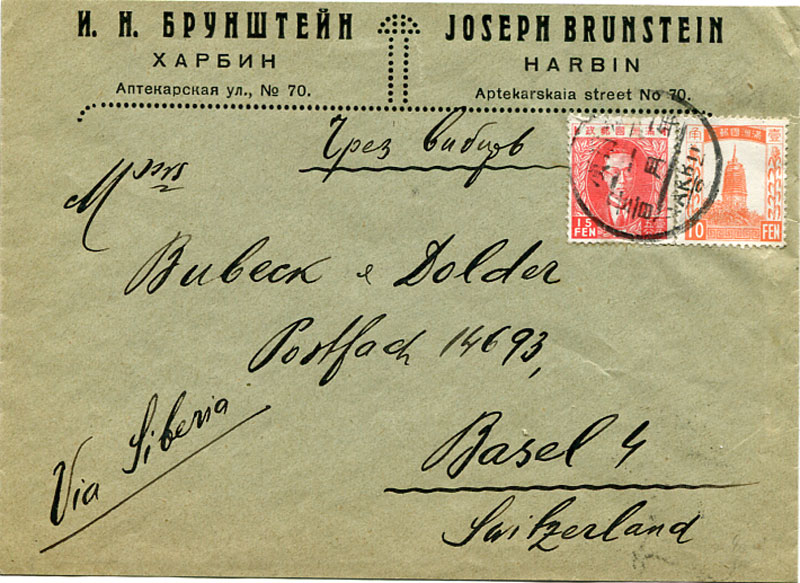 И. Н. БРУНШТЕЙН
ХАРБИН
Аптекарская ул., № 70.
JOSEPH BRUNSTEIN
HARBIN
Aptekarskaia street No 70.
Чрез
Messrs
Bubeck & Dolder
Postfach 14693,
Basel 4
Switzerland
Via Siberia
15
FEN
10 FEN